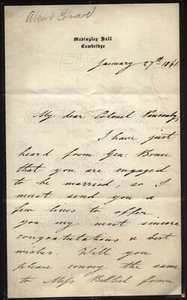 Albert Edward
Madingley Hall
Cambridge
January 27th 1861
My dear Colonel Ponsonby,
I have just
heard from Gen: Bruce
that you are engaged
to be married; so I
must send you a
few lines to offer
you my most sincere
congratulations & best
wishes. Will you
please convey the same
to Miss Bulteel from